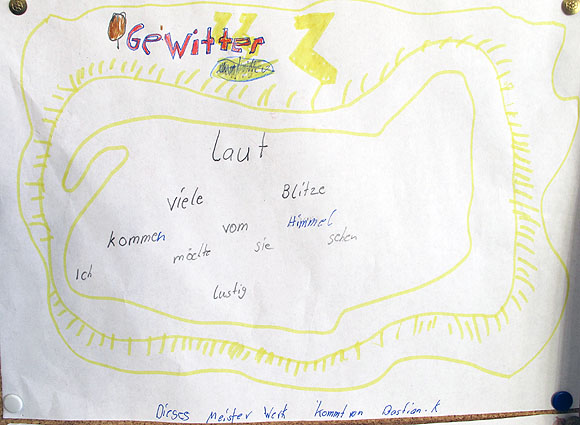 GeWitter
Laut
viele Blitze
kommen vom Himmel
Ich möchte sie sehen
lustig
Dieses Meister Werk kommt von Bastian.K